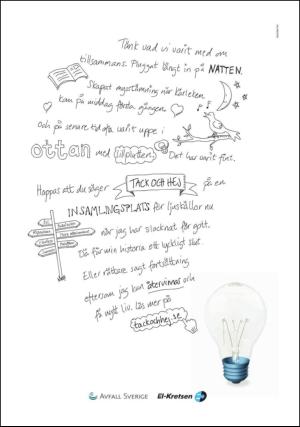 Tänk vad vi varit med om
tillsammans. Pluggat långt in på NATTEN.
Skapat mysstämning när kärleken
kom på middag första gången.
Och på senare tid ofta varit uppe i
ottan med Det har varit fint.
Hoppas att du säger TACK OCH HEJ på en
INSAMLINGSPLATS för ljuskällor nu
när jag har slocknat för gott.
Då får min historia ett lyckligt slut.
Eller rättare sagt fortsättning
eftersom jag kan återvinnas och
få nytt liv. Läs mer på
tackochhej.se
AVFALL SVERIGE El-Kretsen